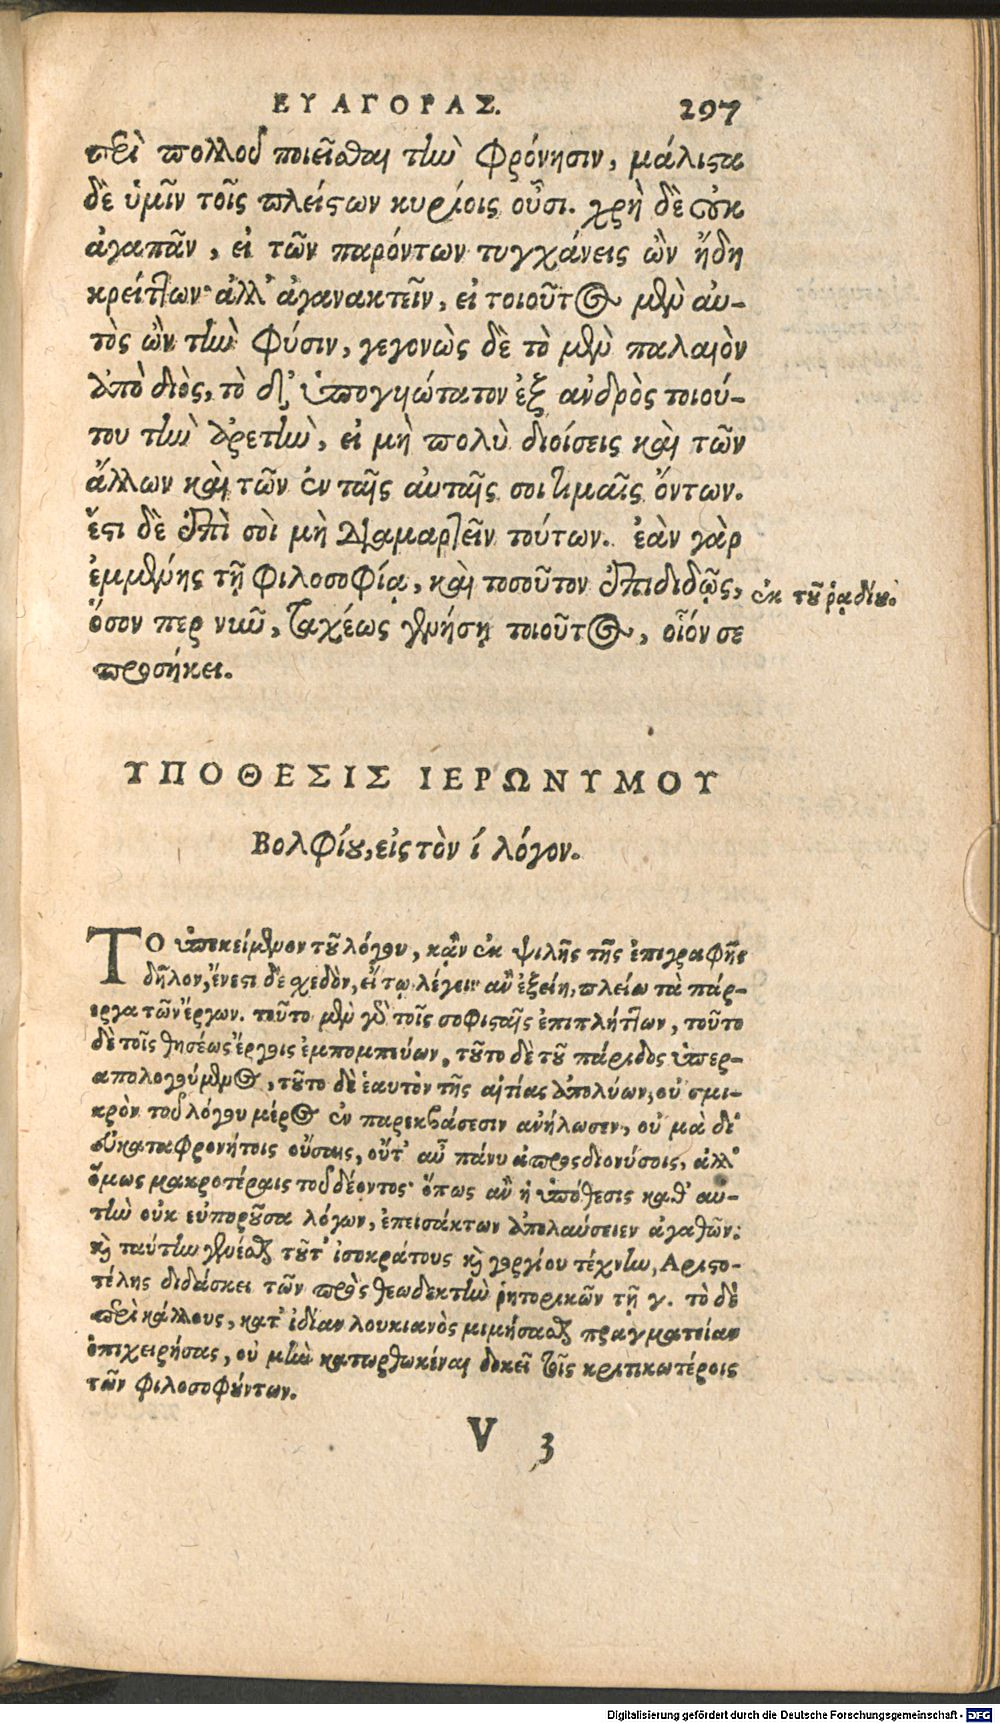 ΕΥΑΓΟΡΑΣ. 297
περὶ πολλοῦ ποιεῖσθαι τὴν φρόνησιν, μάλιστα
δὲ ὑμῖν τοῖς πλείστων κυρίοις οὖσι. χρὴ δὲ οὐκ
ἀγαπᾶν, εἰ τῶν παρόντων τυγχάνεις ὢν ἤδη
κρείττων· ἀλλ' ἀγανακτεῖν, εἰ τοιοῦτος μὲν αὐ-
τὸς ὢν τὴν φύσιν, γεγονὼς δὲ τὸ μὲν παλαιὸν
ἀπὸ διὸς, τὸ δ' ὑπογυιώτατον ἐξ ἀνδρὸς τοιού-
του τὴν ἀρετὴν, εἰ μὴ πολὺ διοίσεις καὶ τῶν
ἄλλων καὶ τῶν ἐν ταῖς αὐταῖς σοι τιμαῖς ὄντων.
ἔστι δὲ ἐπὶ σοὶ μὴ διαμαρτεῖν τούτων. ἐὰν γὰρ
ἐμμένῃς τῇ φιλοσοφίᾳ, καὶ τοσοῦτον ἐπιδιδῷς,
ἐκ τοῦ ῥᾳδίου.
ὅσον περ νῦν, ταχέως γενήσῃ τοιοῦτος, οἷόν σε
προσήκει.
ΥΠΟΘΕΣΙΣ ΙΕΡΩΝΥΜΟΥ
Βολφίου, εἰς τὸν ί λόγον.
ΤΟ ὑποκείμενον τοῦ λόγου, κἂν ἐκ ψιλῆς τῆς ἐπιγραφῆς
δῆλον, ἔνεστι δὲ σχεδὸν, εἴ τῳ λέγειν ἂν ἐξείη, πλείω τὰ πάρ-
εργα τῶν ἔργων. τοῦτο μὲν γὰρ τοῖς σοφισταῖς ἐπιπλήττων, τοῦτο
δὲ τοῖς θησέως ἔργοις ἐμπομπεύων, τοῦτο δὲ τοῦ πάριδος ὑπερ-
απολογούμενος, τοῦτο δὲ ἑαυτὸν τῆς αἰτίας ἀπολύων, οὐ σμι-
κρὸν τοῦ λόγου μέρος ἐν παρεκβάσεσιν ἀνήλωσεν, οὐ μὰ δί'
εὐκαταφρονήτοις οὔσαις, οὔτ' αὖ πάνυ ἀπροσδιονύσοις, ἀλλ'
ὅμως μακροτέραις τοῦ δέοντος· ὅπως ἂν ἡ ὑπόθεσις καθ' αὑ-
τὴν οὐκ εὐποροῦσα λόγων, ἐπεισάκτων ἀπολαύσειεν ἀγαθῶν:
καὶ ταύτην γενέσθαι τοῦτ' ἰσοκράτους καὶ γοργίου τέχνην, Αριστο-
τέλης διδάσκει τῶν πρὸς θεωδεκτὴν ῥητορικῶν τῇ γ. τὸ δὲ
περὶ κάλλους, κατ' ἰδίαν λουκιανὸς μιμήσασθαι πραγματείαν
ἐπιχειρήσας, οὐ μὴν κατωρθωκέναι δοκεῖ τοῖς κριτικωτέροις
τῶν φιλοσοφούντων.
V 3
Digitalisierung gefördert durch die Deutsche Forschungsgemeinschaft - DFG